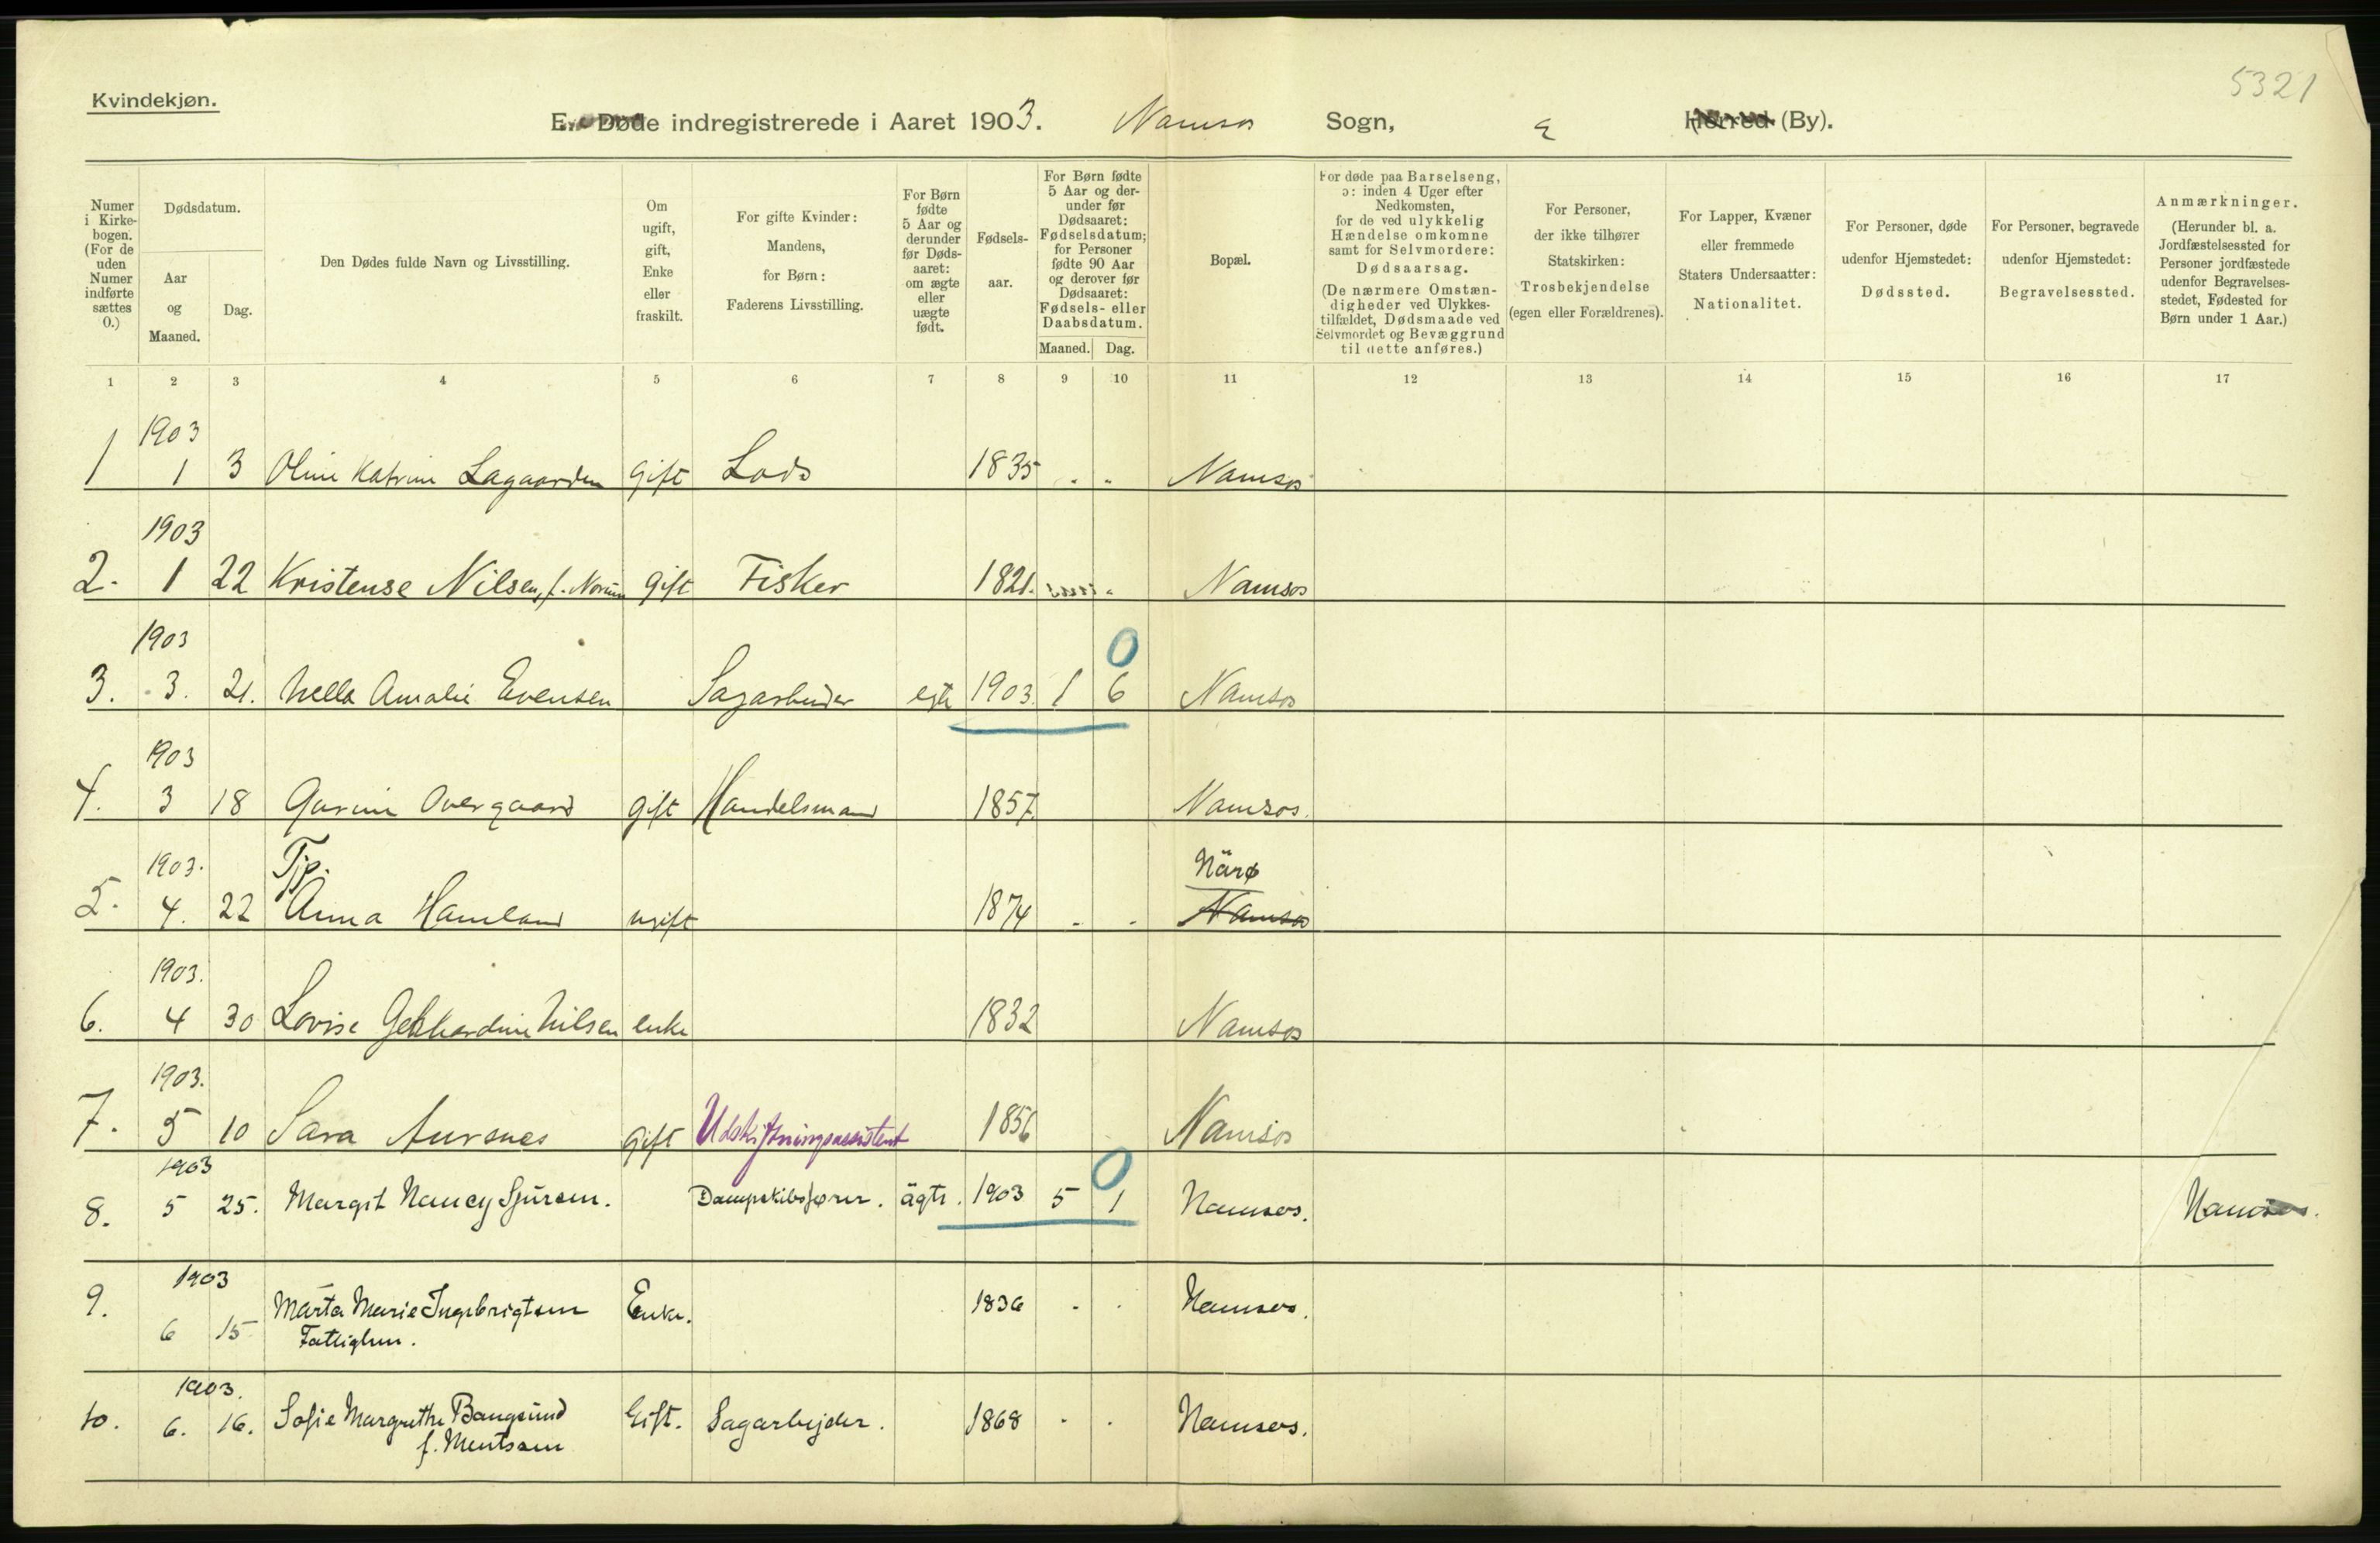 5321
Kvindekjøn.
E. Døde indregistrerede i Aaret 1903. Namsos Sogn, Herred (By).
Numer i Kirkebogen. (For de uden Numer indførte sættes 0.)
Dødsdatum.
Aar og Maaned.
Dag.
Den Dødes fulde Navn og Livsstilling.
Om ugift, gift, Enke eller fraskilt.
For gifte Kvinder: Mandens, for Børn: Faderens Livsstilling.
For Børn fødte 5 Aar og derunder før Dødsaaret: om ægte eller uægte født.
Fødselsaar.
For Børn fødte 5 Aar og derunder før Dødsaaret: Fødselsdatum; for Personer fødte 90 Aar og derover før Dødsaaret: Fødsels- eller Daabsdatum.
Maaned. Dag.
Bopæl.
For døde paa Barselseng, ɔ: inden 4 Uger efter Nedkomsten, for de ved ulykkelig Hændelse omkomne samt for Selvmordere: Dødsaarsag. (De nærmere Omstændigheder ved Ulykkestilfældet, Dødsmaade ved Selvmordet og Bevæggrund til dette anføres.)
For Personer, der ikke tilhører Statskirken: Trosbekjendelse (egen eller Forældrenes).
For Lapper, Kvæner eller fremmede Staters Undersaatter: Nationalitet.
For Personer, døde udenfor Hjemstedet: Dødssted.
For Personer, begravede udenfor Hjemstedet: Begravelsessted.
Anmærkninger. (Herunder bl. a. Jordfæstelsessted for Personer jordfæstede udenfor Begravelsesstedet, Fødested for Børn under 1 Aar.)
1 2 3 4 5 6 7 8 9 10 11 12 13 14 15 16 17
1903
1 1 3 Oline Katrine Lagaarden gift Lods 1835 Namsos
1903
2. 1 22 Kristense Nilsen, f. Norum gift Fisker 1821. Namsos
1903 0
3. 3. 21. Nella Amalie Evensen Sagarbeider egte 1903. 1 6 Namsos
1903
4. 3 18 Overgaard gift Handelsmand 1857. Namsos.
1903. Tjp. Närø
5. 4. 22 Anna Hamland ugift 1874 Namsos
1903.
6. 4 30 Lovise Gebhardine Nilsen enke 1832 Namsos
1903.
7. 5 10 Sara Aursnes gift Udskiftningsassistent 1856 Namsos
1903 0
8. 5 25. Margit Nancy Sjursen. Dampskibsfører. ägte. 1903 5 1 Namsos. Namsos.
1903
9. 6 15 Marta Marie Ingebrigtsen Enke. 1836 Namsos.
Fattiglem.
1903.
10. 6. 16. Sofie Margrethe Bangsund Gift. Sagarbejder. 1868 Namsos.
f. Mentsen